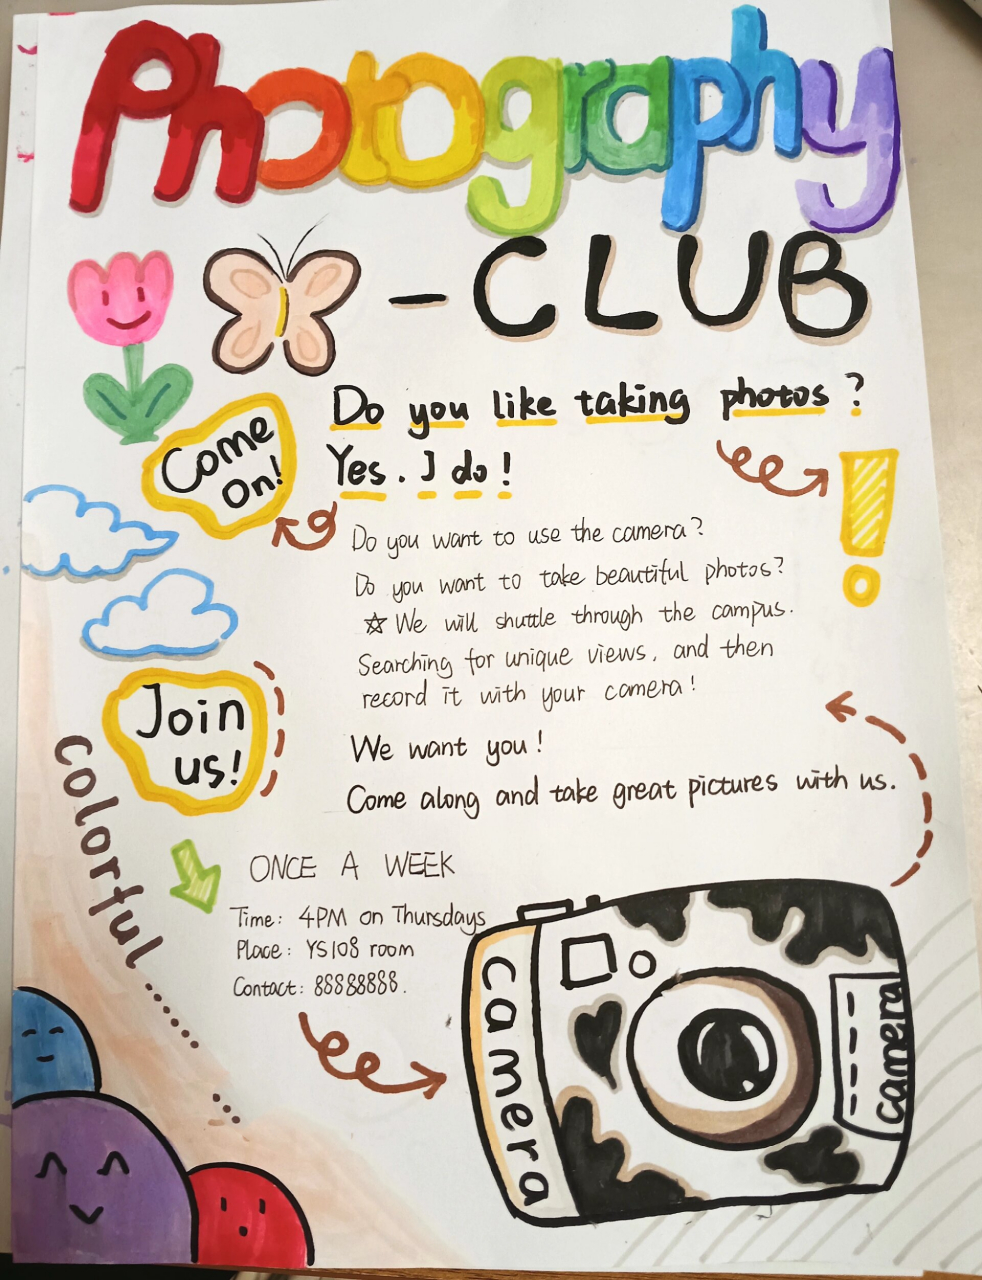 Photography
-CLUB
Do you like taking photos?
Yes. I do!
Come
On!
Do you want to use the camera?
Do you want to take beautiful photos?
☆ We will shuttle through the campus.
Searching for unique views, and then
record it with your camera!
Join
us!
We want you!
Come along and take great pictures with us.
colorful......
ONCE A WEEK
Time: 4PM on Thursdays
Place: YS108 room
Contact: 88888888.
camera
camera